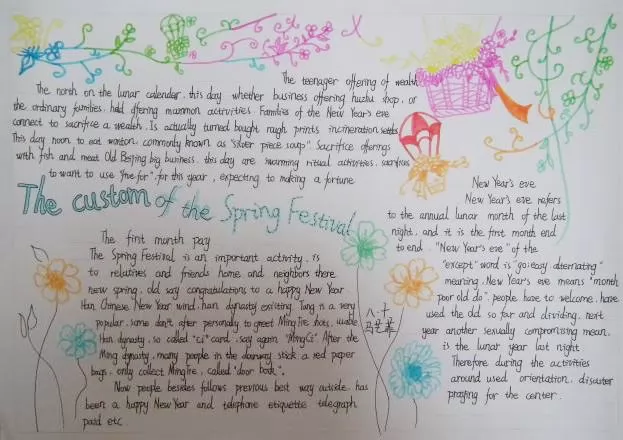 The teenager offering of wealth
The north on the lunar calendar. this day whether business offering huzhu shop, or
the ordinary families, held offering mammon activities. Families of the New Year's eve
connect to sacrifice a wealth. Is actually turned bought rough prints incineration
This day noon to eat wonton, commonly known as "silver piece soup". Sacrifice offerings
with fish and meat Old Beijing big business. this day are warming ritual activities. sacrifices
to want to use "five for". for this year, expecting to making a fortune
The custom of the Spring Festival
The first month pay
The Spring Festival is an important activity. is
to relatives and friends home and neighbors there
new spring. old say congratulations to a happy New Year
Han Chinese New Year wind, han dynasty existing. Tang is a very
popular. some don't after personally to greet Ming Tire shots, usable
Han dynasty, so called "ci" card, say again "Ming Ci". After the
Ming dynasty, many people in the doorway stick a red paper
bags. only collect Ming Tire. called "door book".
Now people besides follows previous best way outside. has
been a happy New Year and telephone etiquette telegraph
paid etc.
New Year's eve
New Year's eve refers
to the annual lunar month of the last
night. and it is the first month end
to end. "New Year's eve" of the
"except" word is "go; easy alternating"
meaning. New Year's eve means "month
poor old do". people have to welcome. have
used the old so far and dividing. next
year another sexually compromising mean.
is the lunar year last night
Therefore during the activities
around used orientation, disaster
praying for the center.
八.十